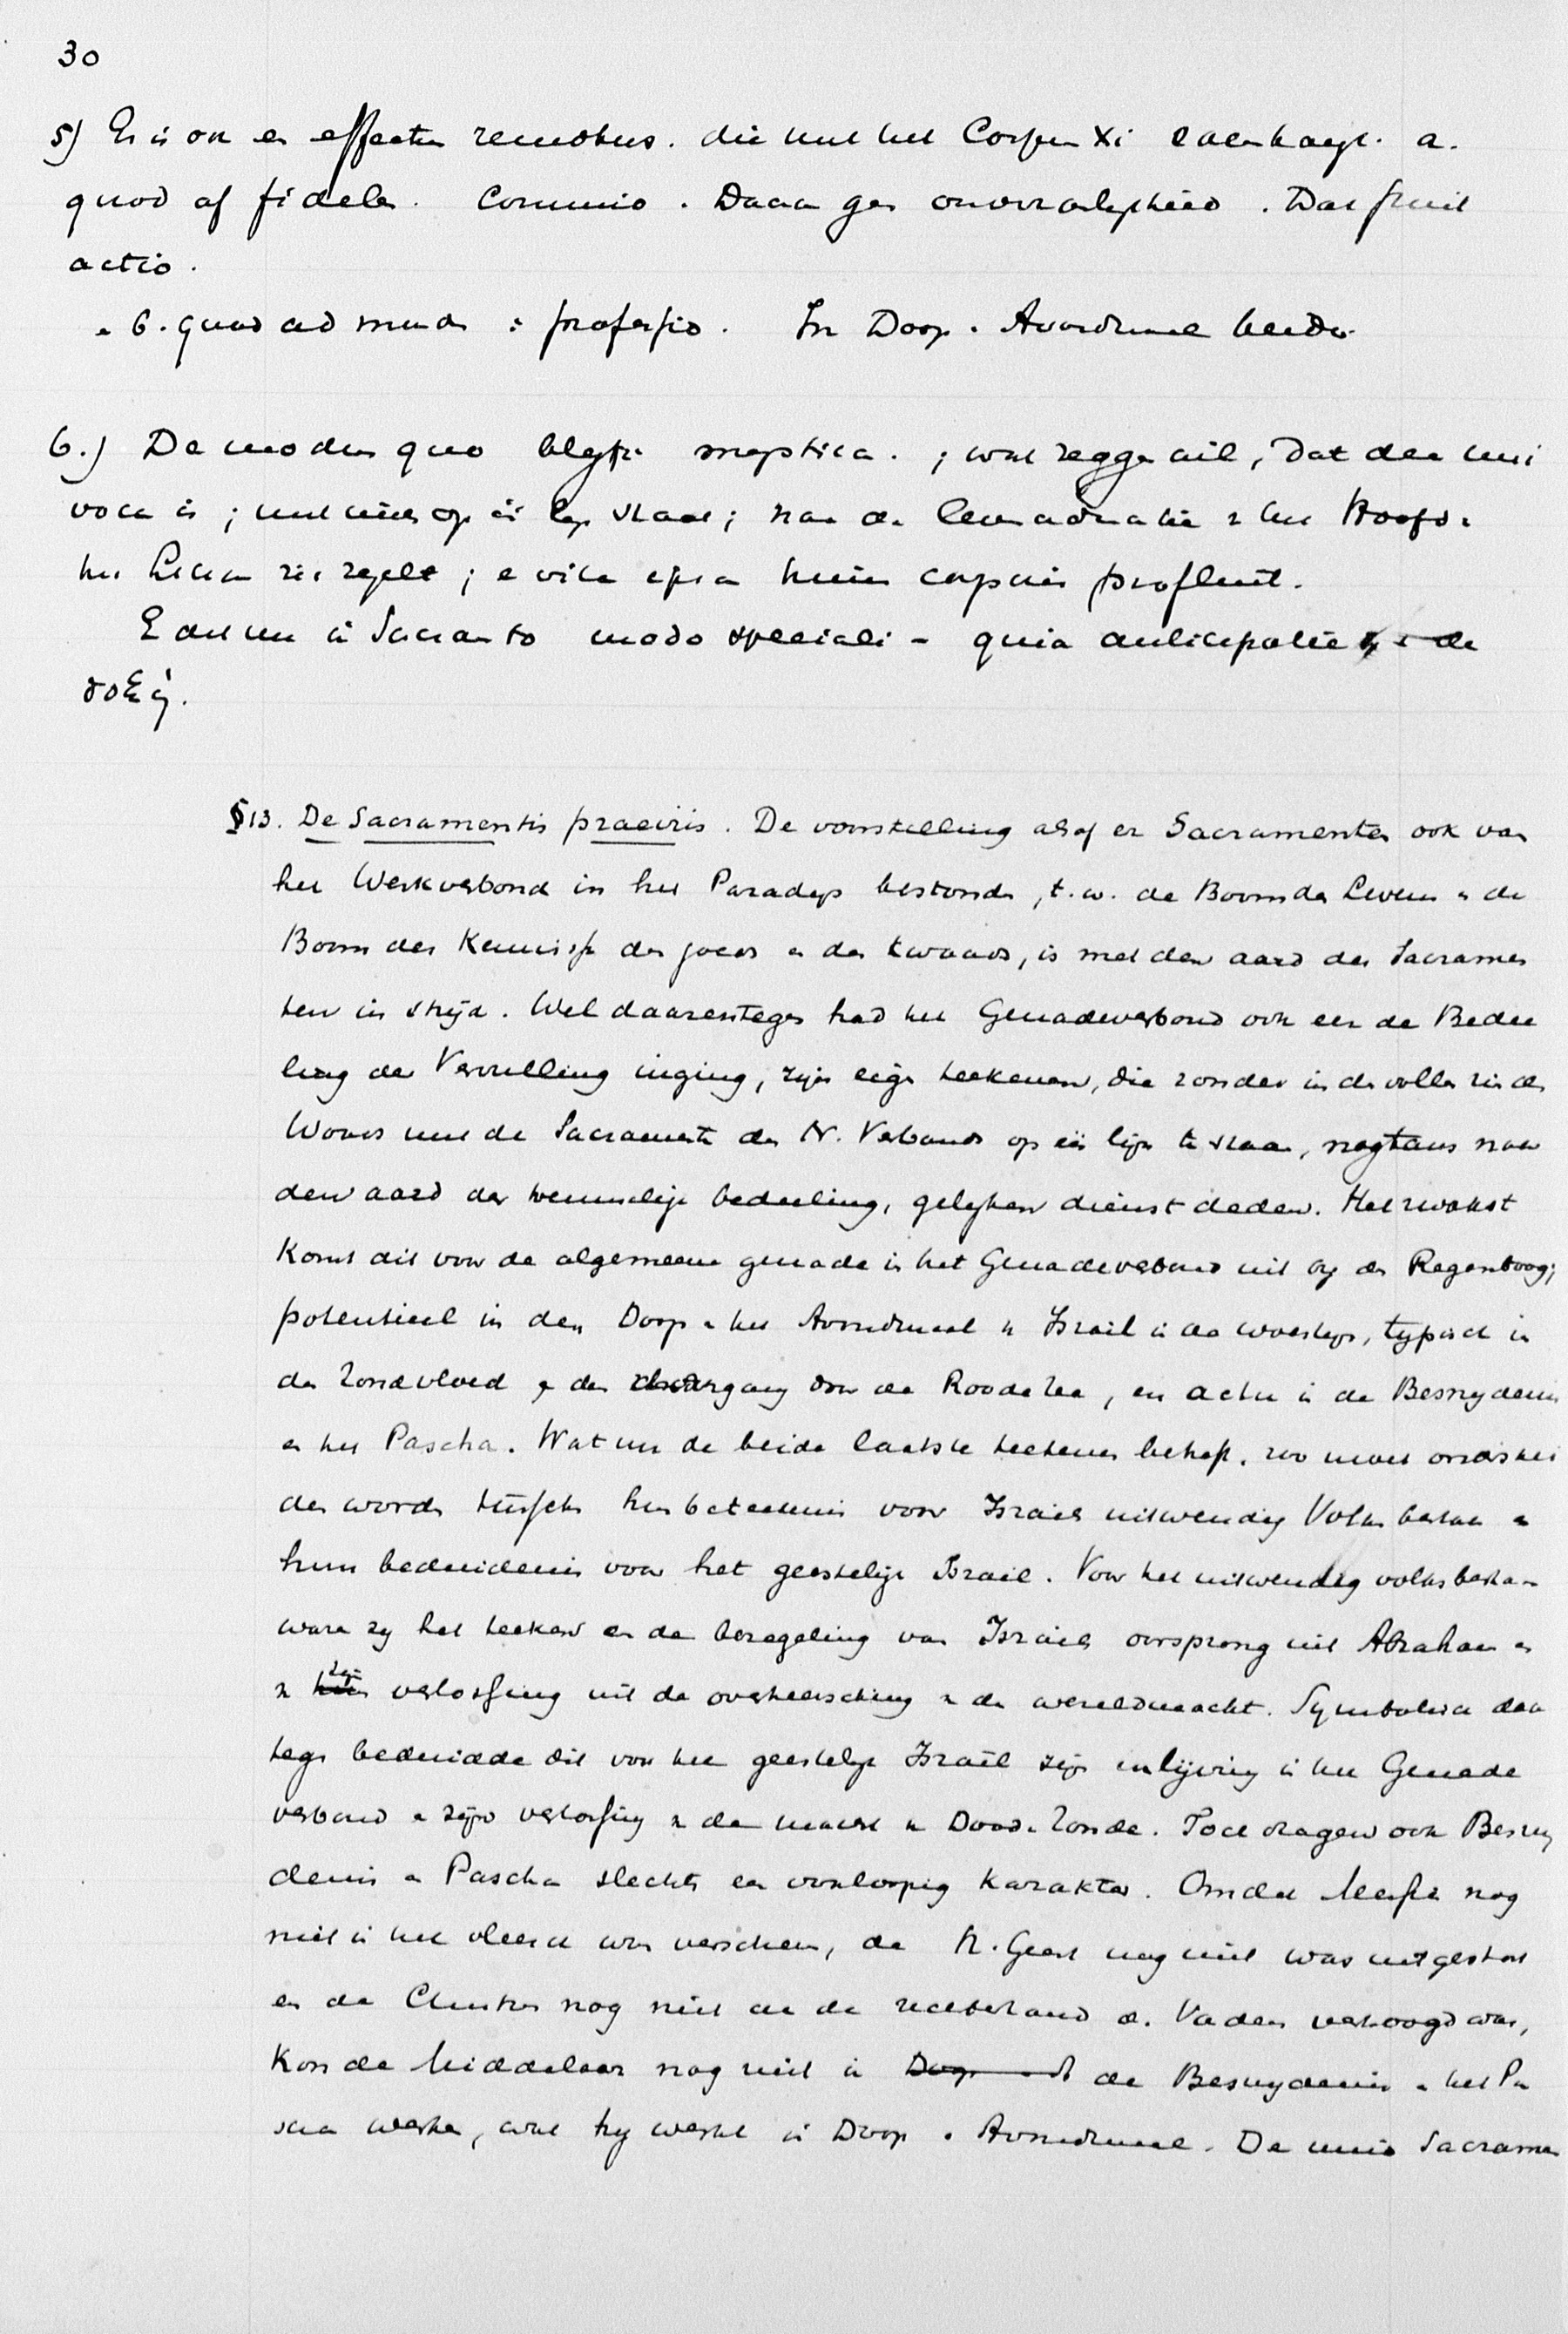 30
5) Er is ook een effectus remotus. die met het Corpus Xi samenhangt. a.
quod ad fideles. Communio. Daar geen onvruchtbaarheid. Dat fruit
actio.
6. quoad mundum: professio. In Doop. Avondmaal beide.
6.) De modus quo blyft mystica.; wat zeggen wil, dat deze uni
voca is; met niets op één lyn staat; naar de het Hoofd.
het Lichaam zich regelt; e vita ipsa huius capitis profluit.
E dit nu in Sacramento modo speciali - quia anticipatie de
δόξης.
§13. De Sacramentis praeviis. De voorstelling alsof er Sacramenten ook van
het Werkverbond in het Paradys bestonden, t.w. de Boom des Levens en de
Boom der Kennisse des goeds en des kwaads, is met den aard der Sacramen
ten in strijd. Wel daarentegen had het Genadeverbond ook eer de Bedee
ling der Vervulling inging, zijn eigen teekenen, die zonder in de volle zin des
Woords met de Sacramenten des N. Verbonds op één lijn te staan, nogtans naar
den aard der toenmalige bedeeling, gelyken dienst deden. Het zwakst
komt dit voor de algemeene genade in het Genadeverbond uit by den Regenboog;
potentieel in den Doop en het Avondmaal v. Israël in de woestijn, typisch in
de Zondvloed en den doorgang door de Roode Zee, en actu in de Besnydenis
en het Pascha. Wat nu de beide laatste teekenen betreft, zoo moet onderschei
den worden tusschen hun beteekenis voor Israëls uitwendig Volksbestaan en
hun beduidenis voor het geestelijk Israël. Voor het uitwendig volksbestaan
waren zy het teeken en de bezegeling van Israëls oorsprong uit Abraham en
v. zijn verlossing uit de overheersching v. de wereldmacht. Symbolisch daaren
tegen beduidde dit voor het geestelijk Israël zijn inlijving in het Genade
verbond en zijn verlossing v. de macht v. Dood en Zonde. Toch dragen ook Besny
denis en Pascha slechts een voorloopig karakter. Omdat Messias nog
niet in het vleesch was verschenen, de H. Geest nog niet was uitgestort
en de Christus nog niet aan de rechterhand d. Vaders verhoogd was,
kon de Middelaar nog niet in de Besnydenis en het Pa
scha werken, wat hy werkt in Doop en Avondmaal. De unio Sacramen